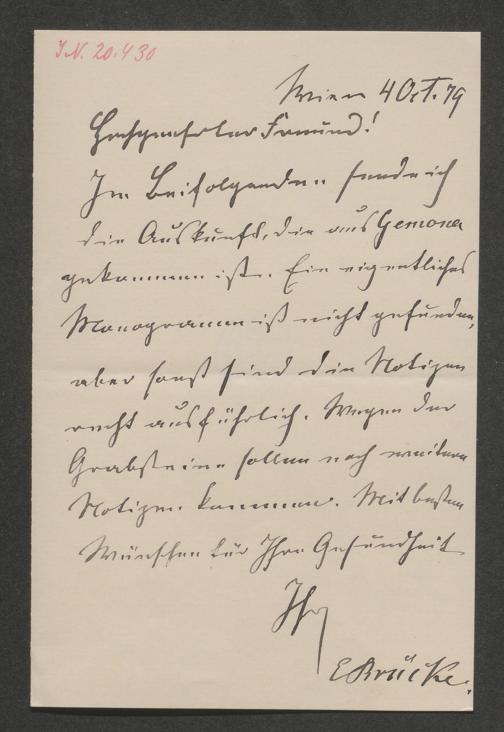 I.N. 20.430
Wien 4 Oct. 79
Hochgeehrter Freund!
Im Beifolgenden sende ich
die Auskunft, die aus Gemona
gekommen ist. Ein eigentliches
Monogramm ist nicht gefunden,
aber sonst sind die Notizen
recht ausführlich. Wegen der
Grabsteine sollen noch weitere
Notizen kommen. Mit besten
Wünschen für Ihre Gesundheit
Ihr
E Brücke.